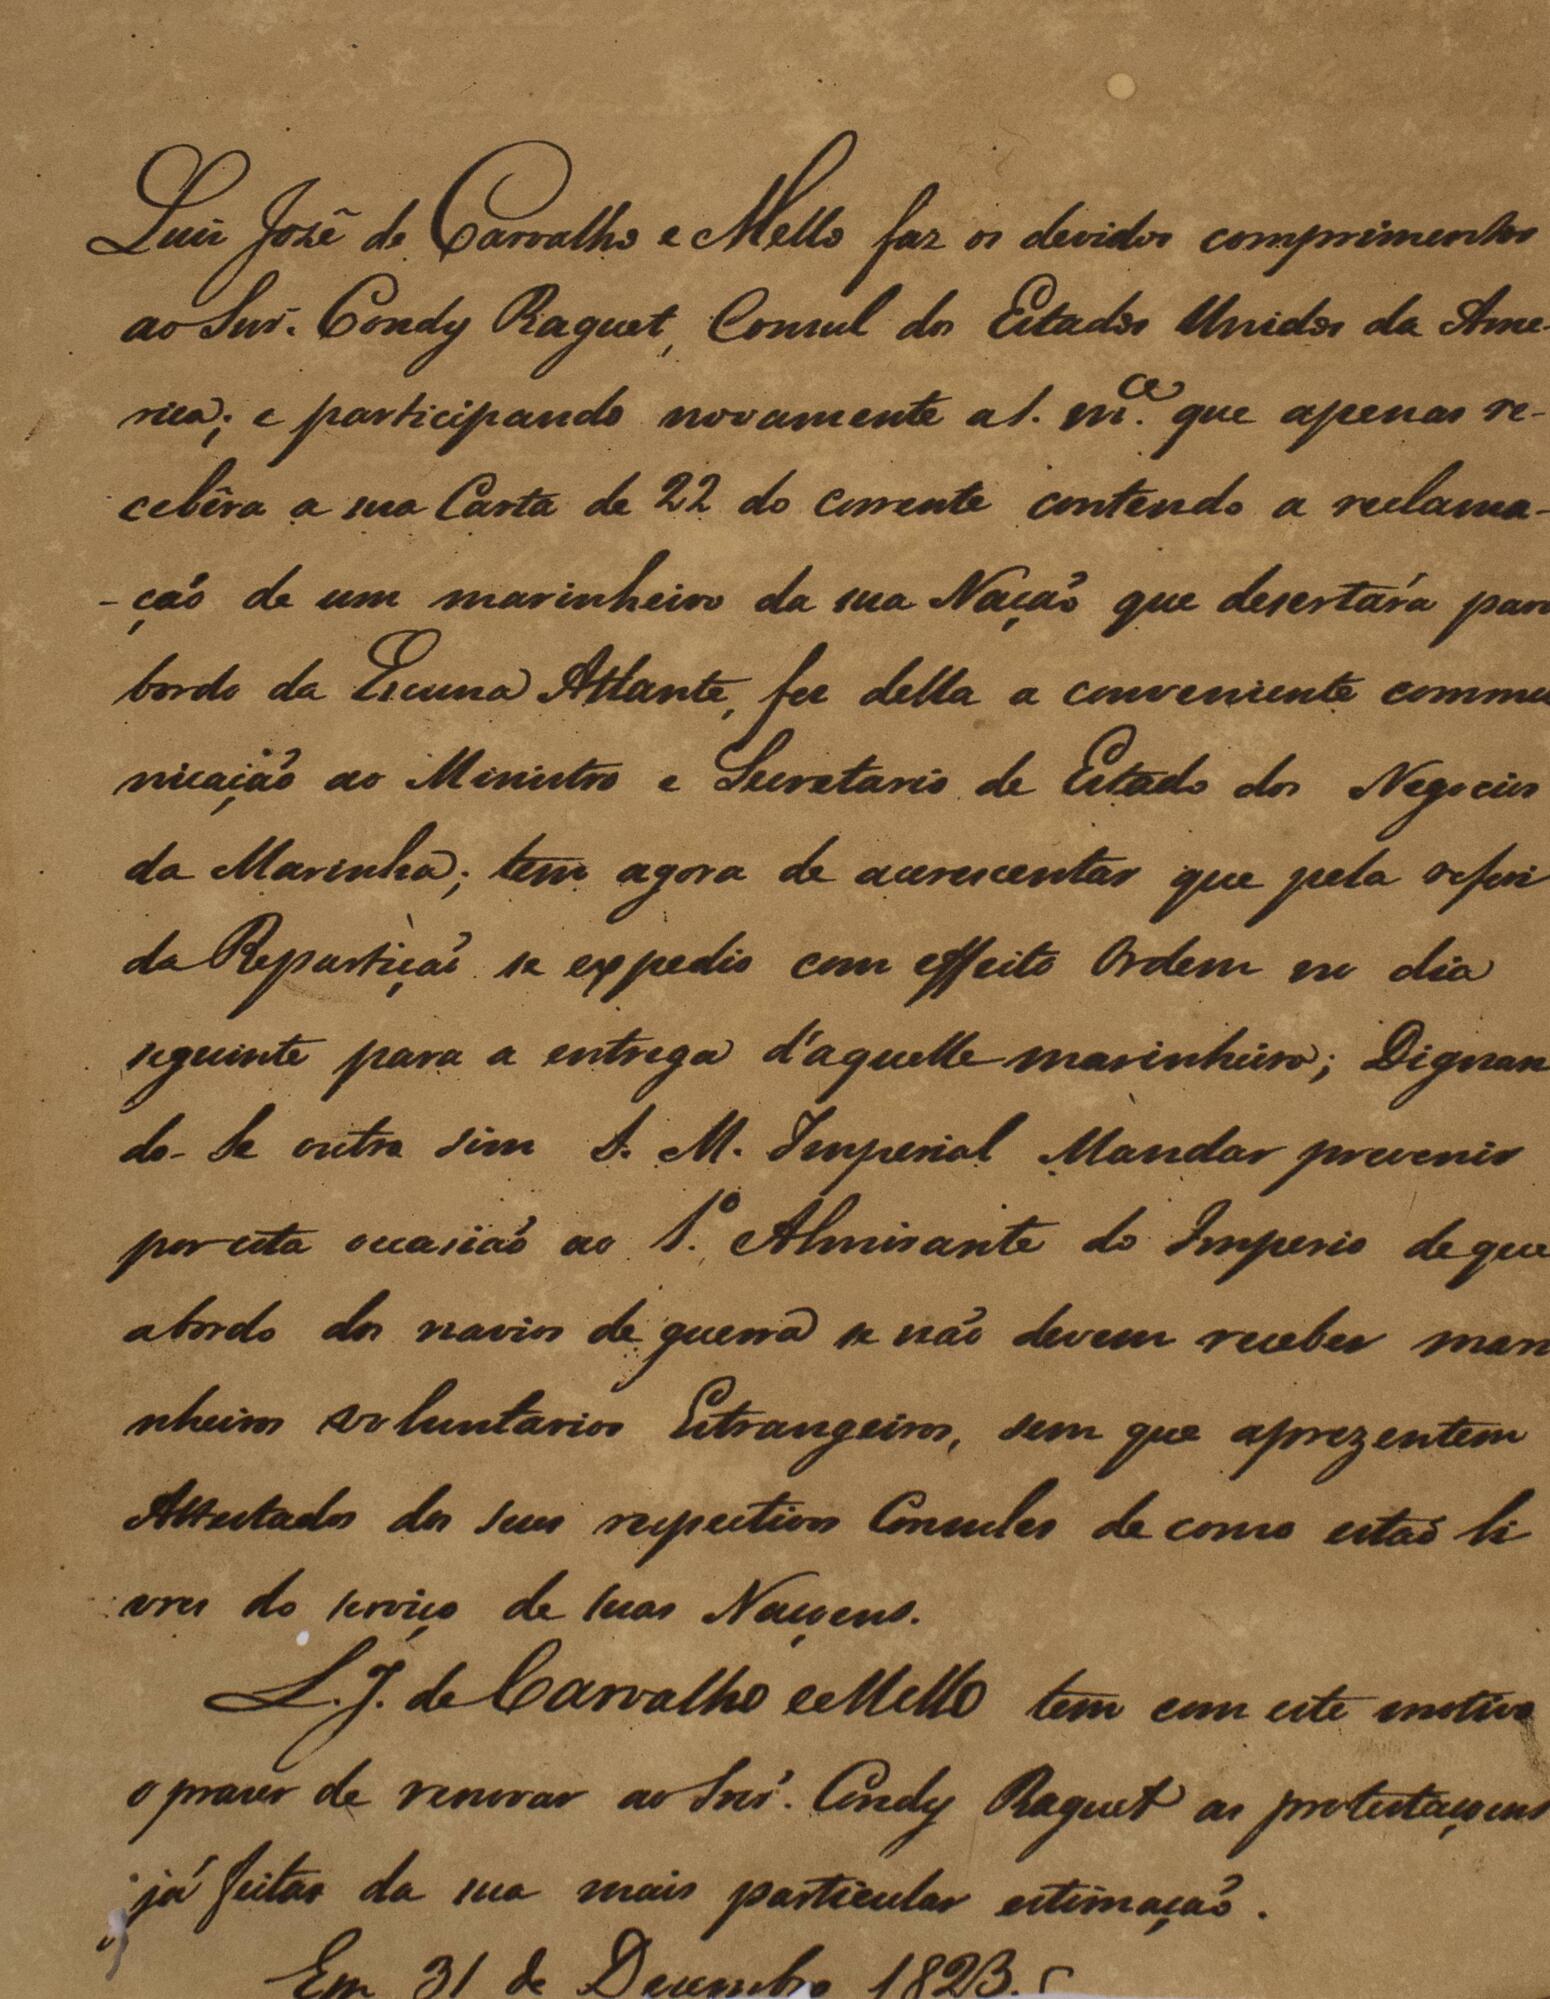 Luis José de Carvalho e Mello faz os devidos comprimentos
ao Snr. Condy Raguet, Consul dos Estados Unidos da Ame-
rica; e participando novamente a S. m.ce que apenas re-
cebêra a sua Carta de 22 do corrente contendo a reclama-
-ção de um marinheiro da sua Nação que desertára para
bordo da Escuna Atlante, fez della a conveniente commu
nicação ao Ministro e Secretario de Estado dos Negocios
da Marinha; tem agora de acrescentar que pela referi
da Repartição se expedio com effeito Ordem no dia
seguinte para a entrega d'aquelle marinheiro; Dignan
do-Se outra sim S. M. Imperial Mandar prevenir
por esta occasião ao 1.º Almirante do Imperio de que
a bordo dos navios de guerra se não devem receber mari
nheiros voluntarios Estrangeiros, sem que aprezentem
Attestados dos seus respectivos Consules de como estaõ li
vres do serviço de suas Naçoens.
L. J. de Carvalho e Mello tem com este motivo
o prazer de renovar ao Snr. Condy Raguet as protestaçoens
já feitas da sua mais particular estimação.
Em 31 de Dezembro 1823.